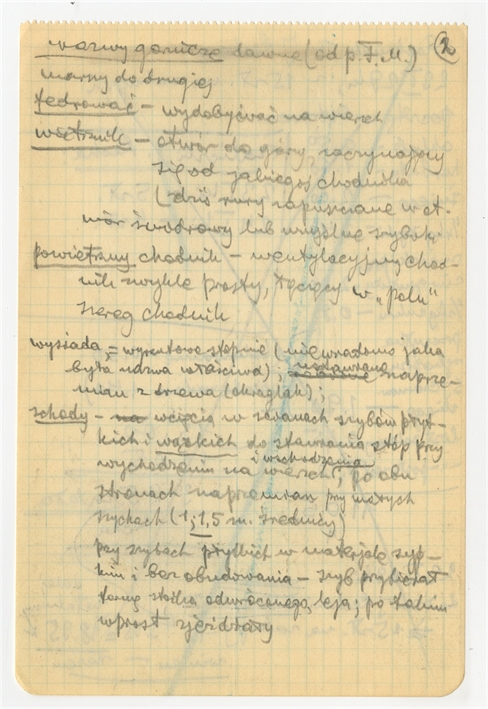 nazwy górnicze dawne (od p. F. M.) 2
do drugiej
fedrować – wydobywać na wierzch
wietrznik – otwór do góry, zaczynający
się od jakiegoś chodnika
(dziś rury zapuszczane w ot-
wór świdrowy lub umyślne szybik
powietrzny chodnik – wentylacyjny chod-
nik zwykle prosty, łączący w „polu"
szereg chodnik
wysiada, – wysuwowe stopnie (nie wiadomo jaka
była nazwa właściwa); ustawiane naprze-
mian z drzewa (okrąglak);
schody – na wcięcia w ścianach szybów płyt-
kich i wązkich do stawiania stóp przy
wychodzeniu na wierzch i wschodzenia, po obu
stronach naprzemian przy małych
szybach (1, 1,5 m. średnicy)
przy szybach płytkich w materjale syp-
kim i bez obudowania – szyb przybierał
formę stożka odwróconego, leja; po takim
wprost zjeżdżały